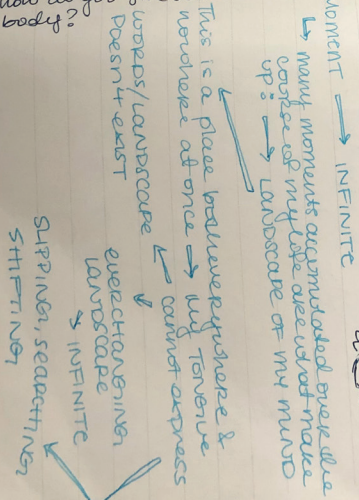 body?
MOMENT → INFINITE
↳ many moments accumulated over the
course of my life are what make
up: → LANDSCAPE OF MY MIND
This is a place both everywhere &
nowhere at once → my TONGUE
cannot express
WORDS/LANDSCAPE
DOESN'T EXIST
EVERCHANGING
LANDSCAPE
→ INFINITE
SLIPPING, SEARCHING,
SHIFTING,